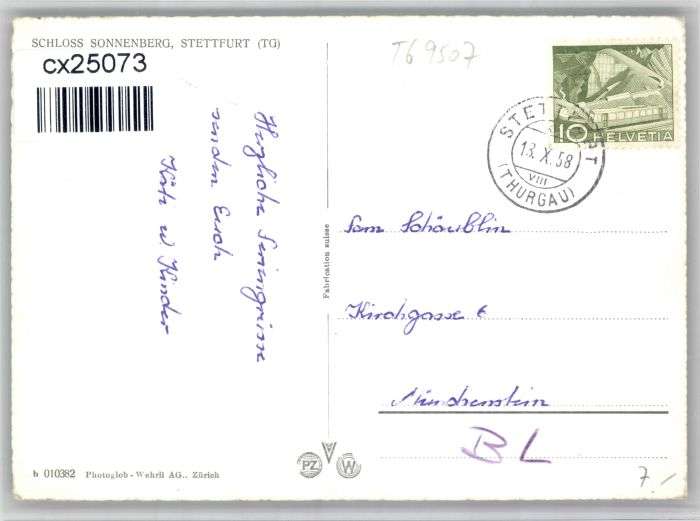 SCHLOSS SONNENBERG, STETTFURT (TG)
cx25073
TG 9507
10 HELVETIA
STETTFURT
13. X. 58
VIII
(THURGAU)
Herzliche Feriengrüsse
senden Euch
Käti u Kinder
Fabrication suisse
Fam Schäublin
Kirchgasse 6
Münchenstein
BL
PZ W
h 010382 Photoglob-Wehrli AG., Zürich
7.-